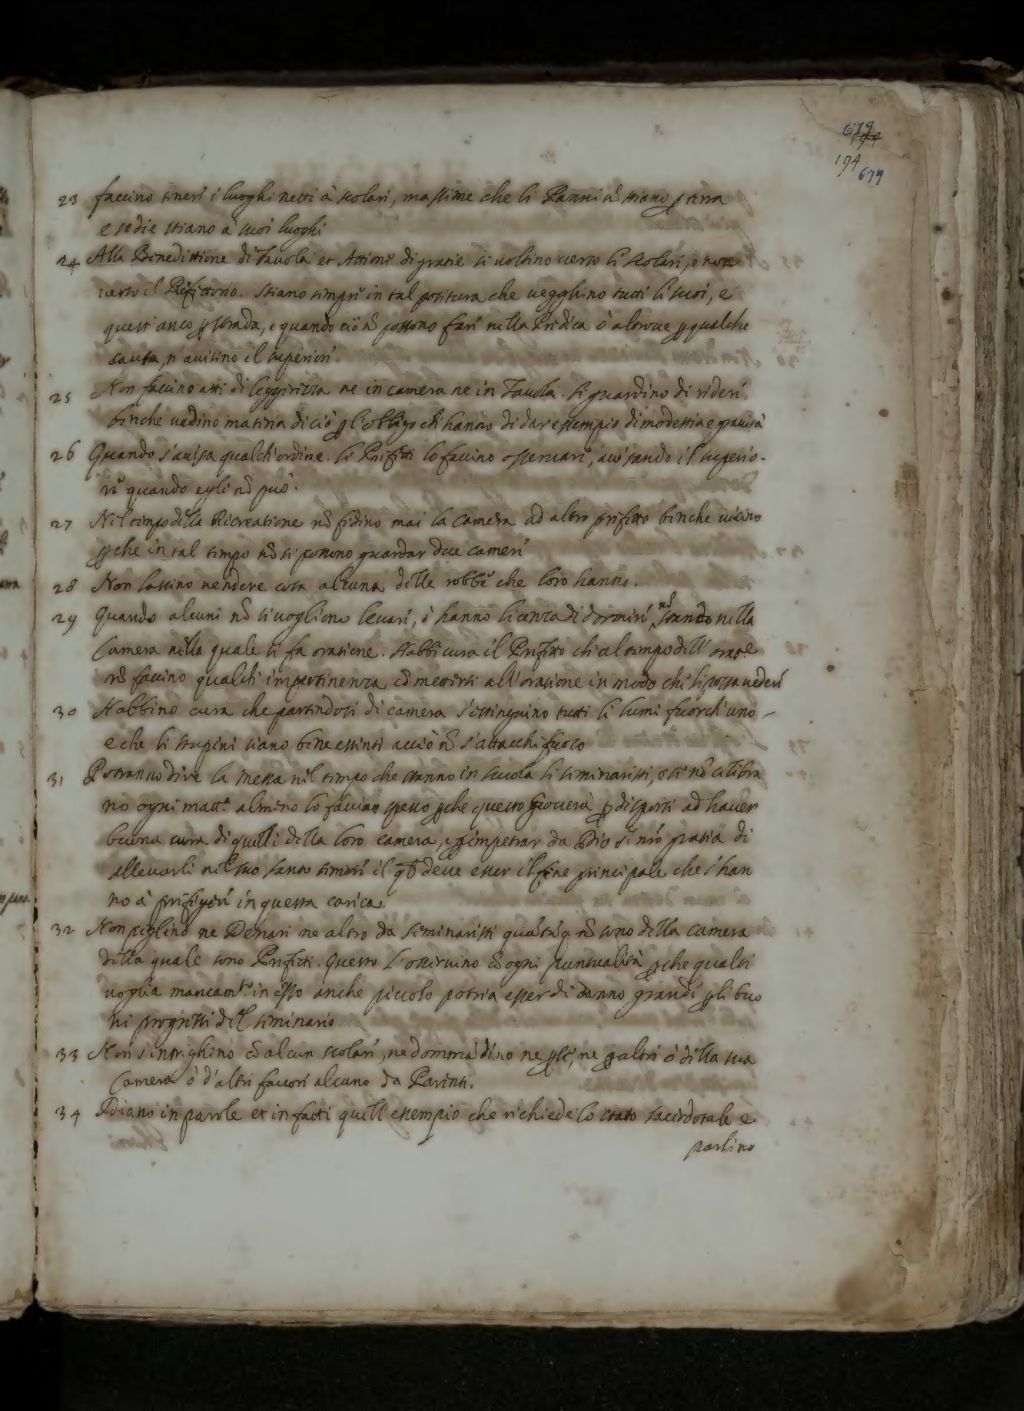 679
194
194
679
23 faccino tener i luoghi netti à scolari, massime che li Panni nõ stiano ꝑ terra
e sedie stiano à suoi luoghi
24 Alla Benedittione di Tavola et Attione di gratie si voltino verso li scolari, e non
verso il Refittorio. Stiano sempre in tal positura che vegghino tutti li suoi, e
questi anco ꝑ strada, e quando ciò nõ possono fare nella Predica ò altrove ꝑ qualche
causa, n avisino il superiore.
25 Non faccino atti di leggierezza ne in camera ne in Tavola. si guardino di ridere
benche vedino materia di ciò ꝑ l'obbligo ch hanno di dar essempio di modestia e gravità
26 Quando s'avisa qualch'ordine. li Prefetti lo faccino osservare, avisando il superio-
re quando egli nõ può.
27 Nel tempo della Ricreatione nõ fidino mai la camera ad altro prefetto benche vicino
ꝑche in tal tempo nõ si possono guardar due camere
28 Non lassino vendere cosa alcuna delle robbe che loro hanno.
29 Quando alcuni nõ si vogliono levare, ò hanno licenza di dormire, nõ stando nella
Camera nella quale si fa oratione. Habbi cura il Prefetto ch al tempo dell' orat.e
nõ faccino qualch' impertinenza cõ mettersi all'oratione in modo che li possa vedere
30 Habbino cura che partendosi di camera s'estinguino tutti li lumi fuorch' uno -
e che li stupini siano bene estinti acciò nõ s'attacchi fuoco
31 Potranno dire la messa nel tempo che stanno in scuola li seminaristi, e se nõ celebra
no ogni matt.a almeno lo faccino spesso ꝑche questo gioverà ꝑ disporsi ad haver
buona cura di quelli della loro camera, e ꝑ impetrar da Dio S. nro gratia di
allevarli nel suo santo timore il qle deve esser il fine principale che s'han
no à prefigere in questa carica.
32 Non piglino ne Denari ne altro da seminaristi nõ sono della camera
della quale sono Prefetti. Questo l'osservino cõ ogni puntualità ꝑche qualsi
voglia mancam.to in esso anche piccolo potria esser di danno grande ꝑ li buo
ni progressi del seminario
33 Non s'intrighino cõ alcun scolare, ne dommãdino ne ꝑ se, ne ꝑ altri ò della sua
Camera ò d'altri favore alcuno da Parenti.
34 Diano in parole et in fatti quell' essempio che richiede lo stato sacerdotale e
parlino